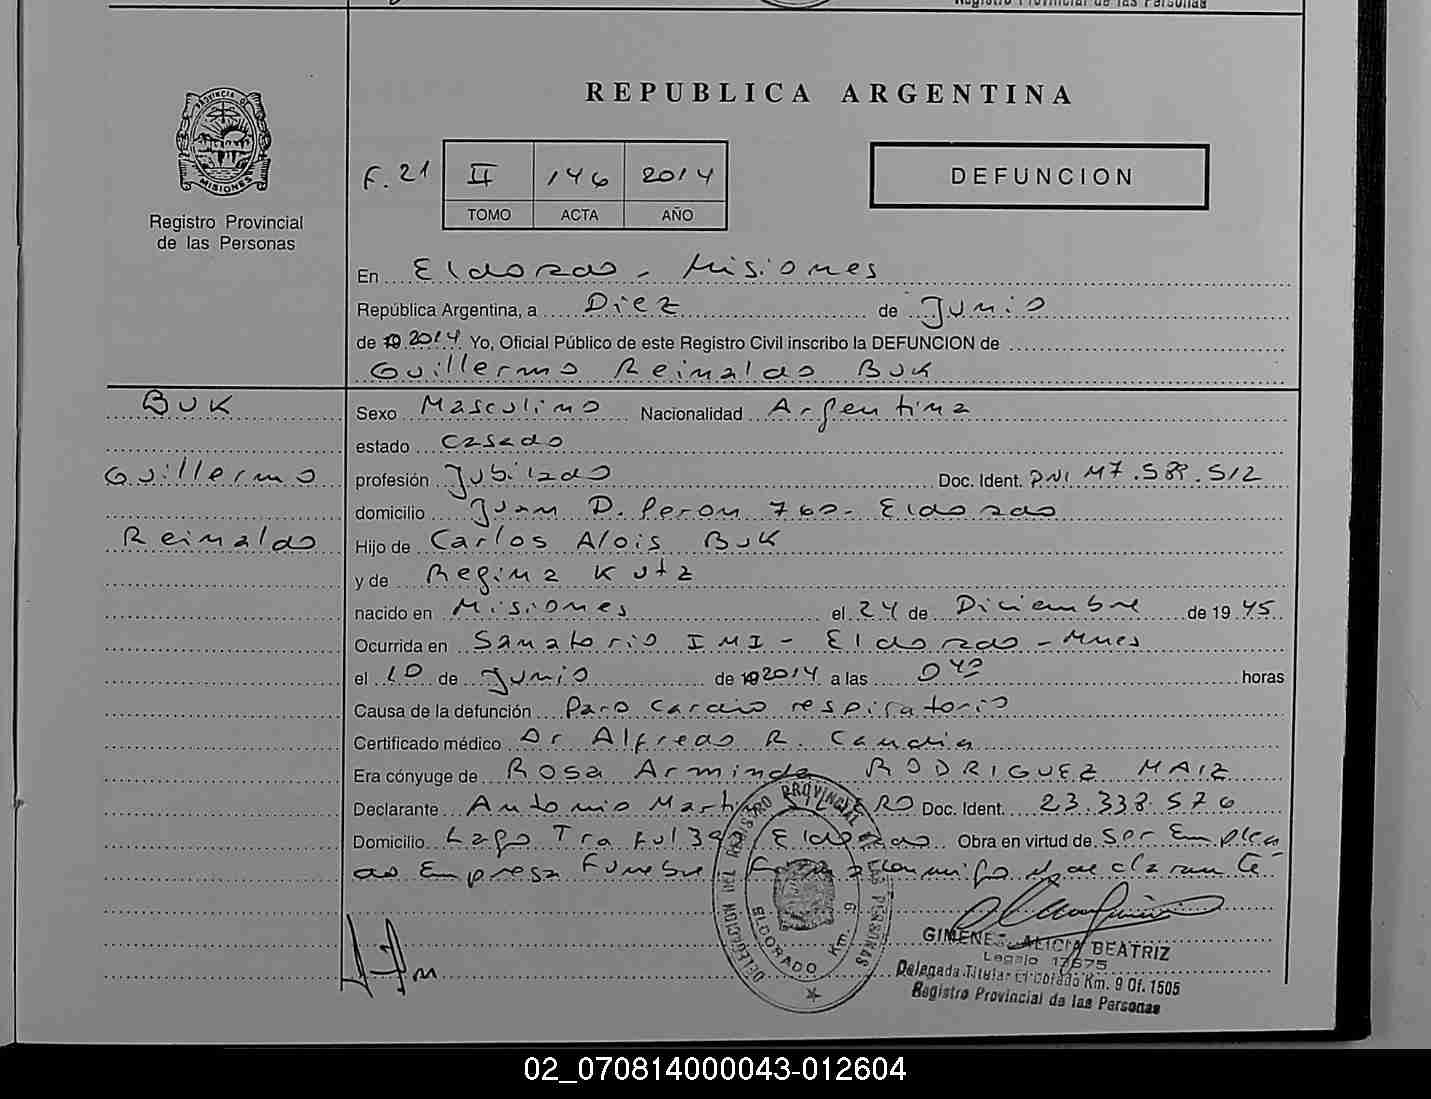 Registro Provincial de las Personas
REPUBLICA ARGENTINA
PROVINCIA DE
MISIONES
Registro Provincial
de las Personas
F. 21 II 146 2014
TOMO ACTA AÑO
DEFUNCION
En Eldorado - Misiones
República Argentina, a Diez de Junio
de 2014 Yo, Oficial Público de este Registro Civil inscribo la DEFUNCION de
Guillermo Reinaldo BUK
BUK
Guillermo
Reinaldo
Sexo Masculino Nacionalidad Argentina
estado Casado
profesión Jubilado Doc. Ident. DNI M7.589.512
domicilio Juan D. Peron 760- Eldorado
Hijo de Carlos Alois BUK
y de Regina Kutz
nacido en Misiones el 24 de Diciembre de 1945
Ocurrida en Sanatorio IMI - Eldorado - Mnes
el 10 de Junio de 2014 a las 0 40 horas
Causa de la defunción Paro cardio respiratorio
Certificado médico Dr Alfredo R. Candia
Era cónyuge de Rosa Arminda RODRIGUEZ MAIZ
Declarante Antonio Doc. Ident. 23.338.576
Domicilio Lago Traful Eldorado Obra en virtud de Ser Emplea
do Empresa Funebre conmigo declarante
DELEGACION DEL REGISTRO PROVINCIAL DE LAS PERSONAS
ELDORADO Km. 9
GIMENEZ, ALICIA BEATRIZ
Legajo 17675
Delegada Titular Eldorado Km. 9 Of. 1505
Registro Provincial de las Personas
02_070814000043-012604